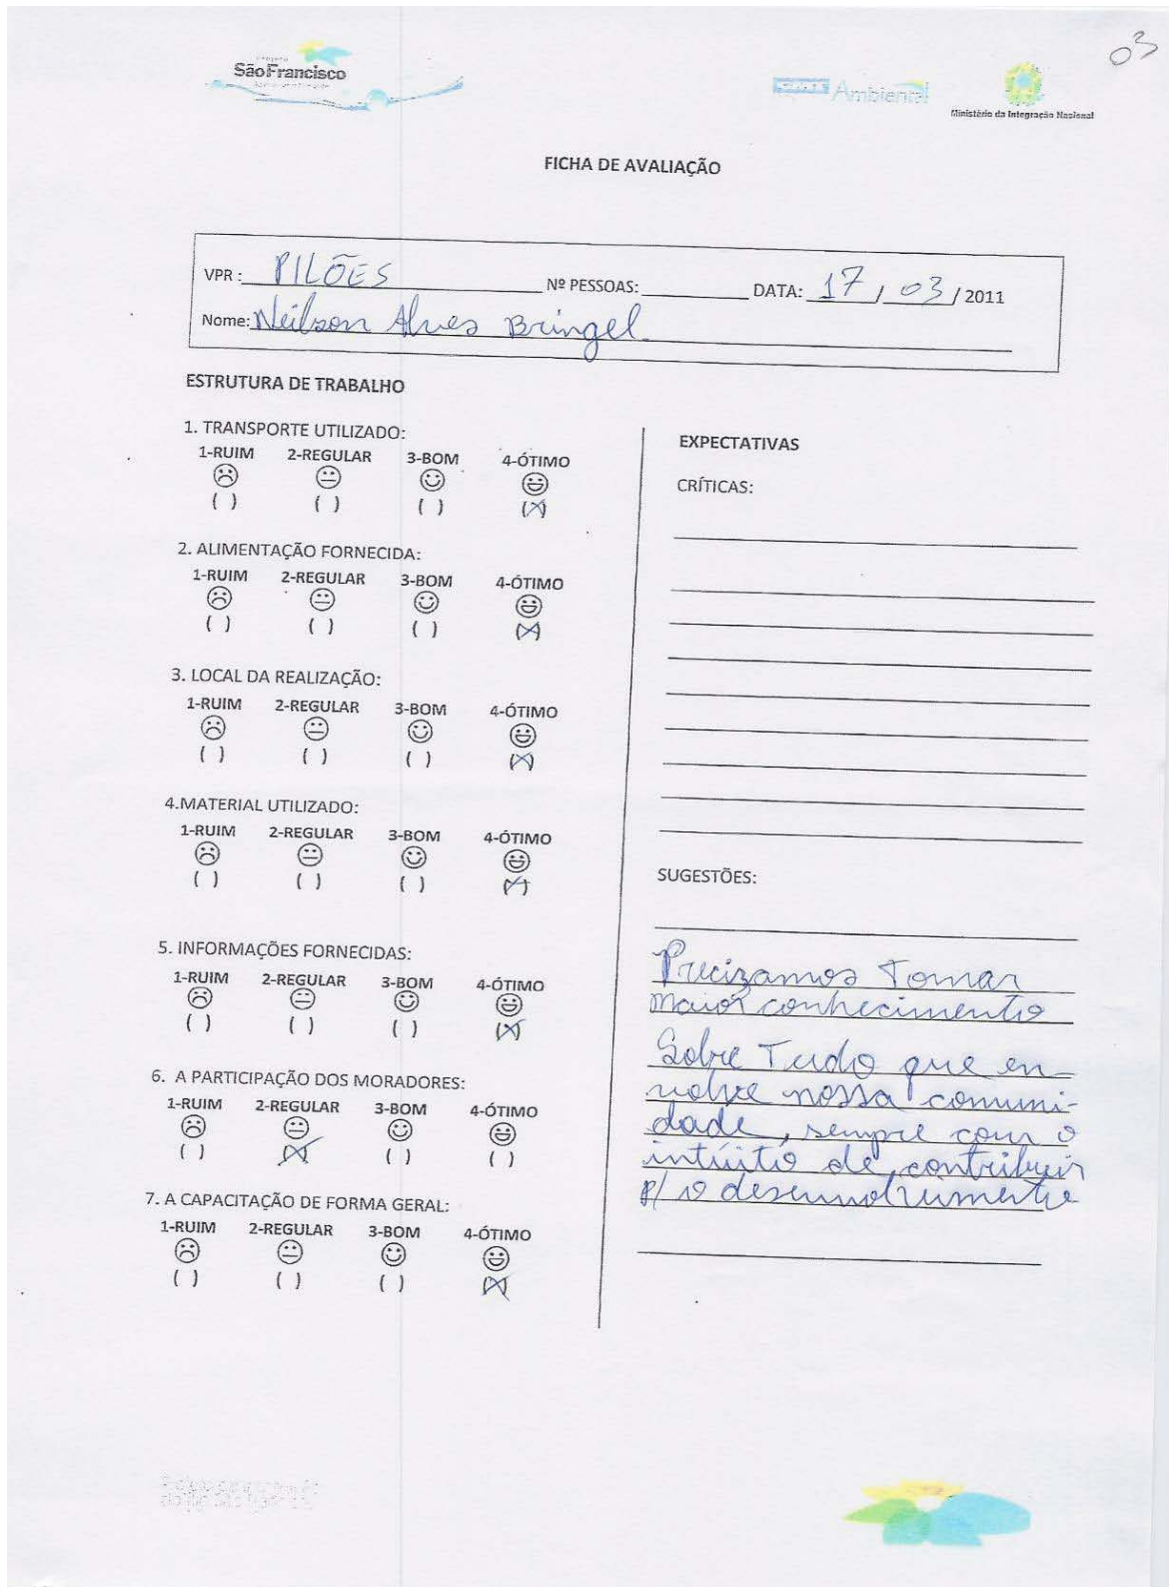 03
Projeto
São Francisco
Ambiental
Ministério da Integração Nacional
FICHA DE AVALIAÇÃO
VPR : PILÕES Nº PESSOAS: DATA: 17 / 03 / 2011
Nome: Neilson Alves Bringel
ESTRUTURA DE TRABALHO
1. TRANSPORTE UTILIZADO:
1-RUIM 2-REGULAR 3-BOM 4-ÓTIMO
( ) ( ) ( ) (X)
2. ALIMENTAÇÃO FORNECIDA:
1-RUIM 2-REGULAR 3-BOM 4-ÓTIMO
( ) ( ) ( ) (X)
3. LOCAL DA REALIZAÇÃO:
1-RUIM 2-REGULAR 3-BOM 4-ÓTIMO
( ) ( ) ( ) (X)
4.MATERIAL UTILIZADO:
1-RUIM 2-REGULAR 3-BOM 4-ÓTIMO
( ) ( ) ( ) (X)
5. INFORMAÇÕES FORNECIDAS:
1-RUIM 2-REGULAR 3-BOM 4-ÓTIMO
( ) ( ) ( ) (X)
6. A PARTICIPAÇÃO DOS MORADORES:
1-RUIM 2-REGULAR 3-BOM 4-ÓTIMO
( ) (X) ( ) ( )
7. A CAPACITAÇÃO DE FORMA GERAL:
1-RUIM 2-REGULAR 3-BOM 4-ÓTIMO
( ) ( ) ( ) (X)
EXPECTATIVAS
CRÍTICAS:
SUGESTÕES:
Precizamos Tomar
maior conhecimento
Sobre Tudo que en-
volve nossa comuni-
dade, sempre com o
intúito de contribuir
p/ o desennvolvimento